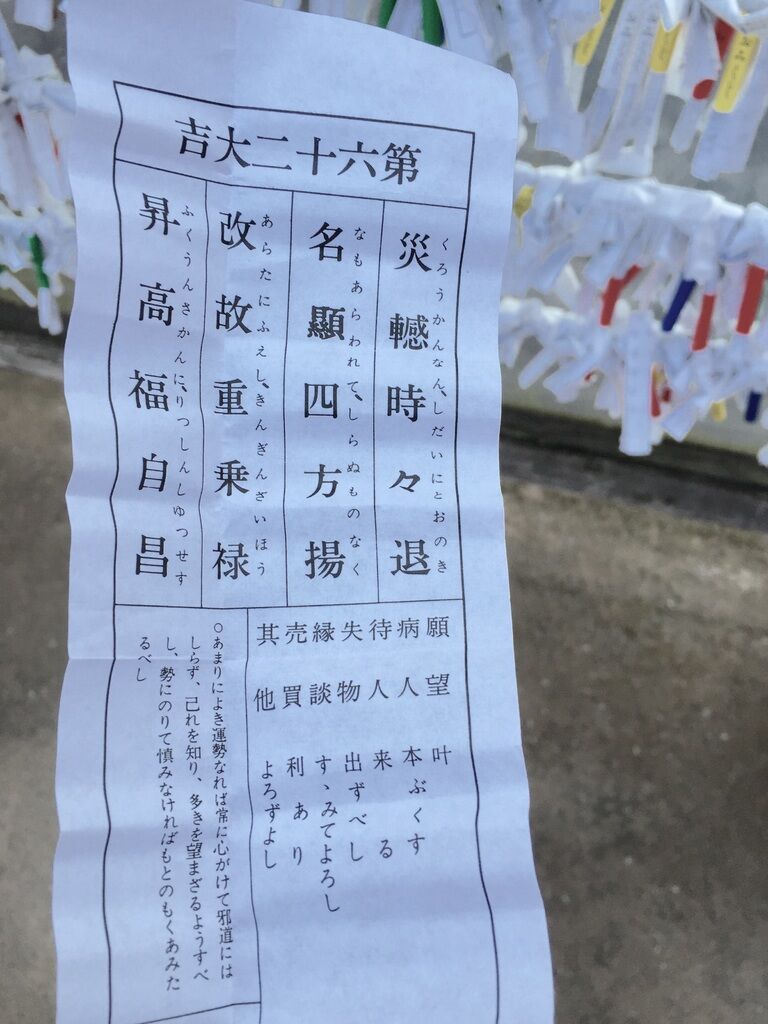 第六十二大吉
災轗時々退
くろうかんなん、しだいにとおのき
名顯四方揚
なもあらわれて、しらぬものなく
改故重乗禄
あらたにふえし、きんぎんざいほう
昇高福自昌
ふくうんさかんに、りつしんしゆつせす
願望 叶
病人 本ぶくす
待人 来る
失物 出ずべし
縁談 すゝみてよろし
売買 利あり
其他 よろずよし
○あまりによき運勢なれば常に心がけて邪道には
しらず、己れを知り、多きを望まざるようすべ
し、勢にのりて慎みなければもとのもくあみた
るべし